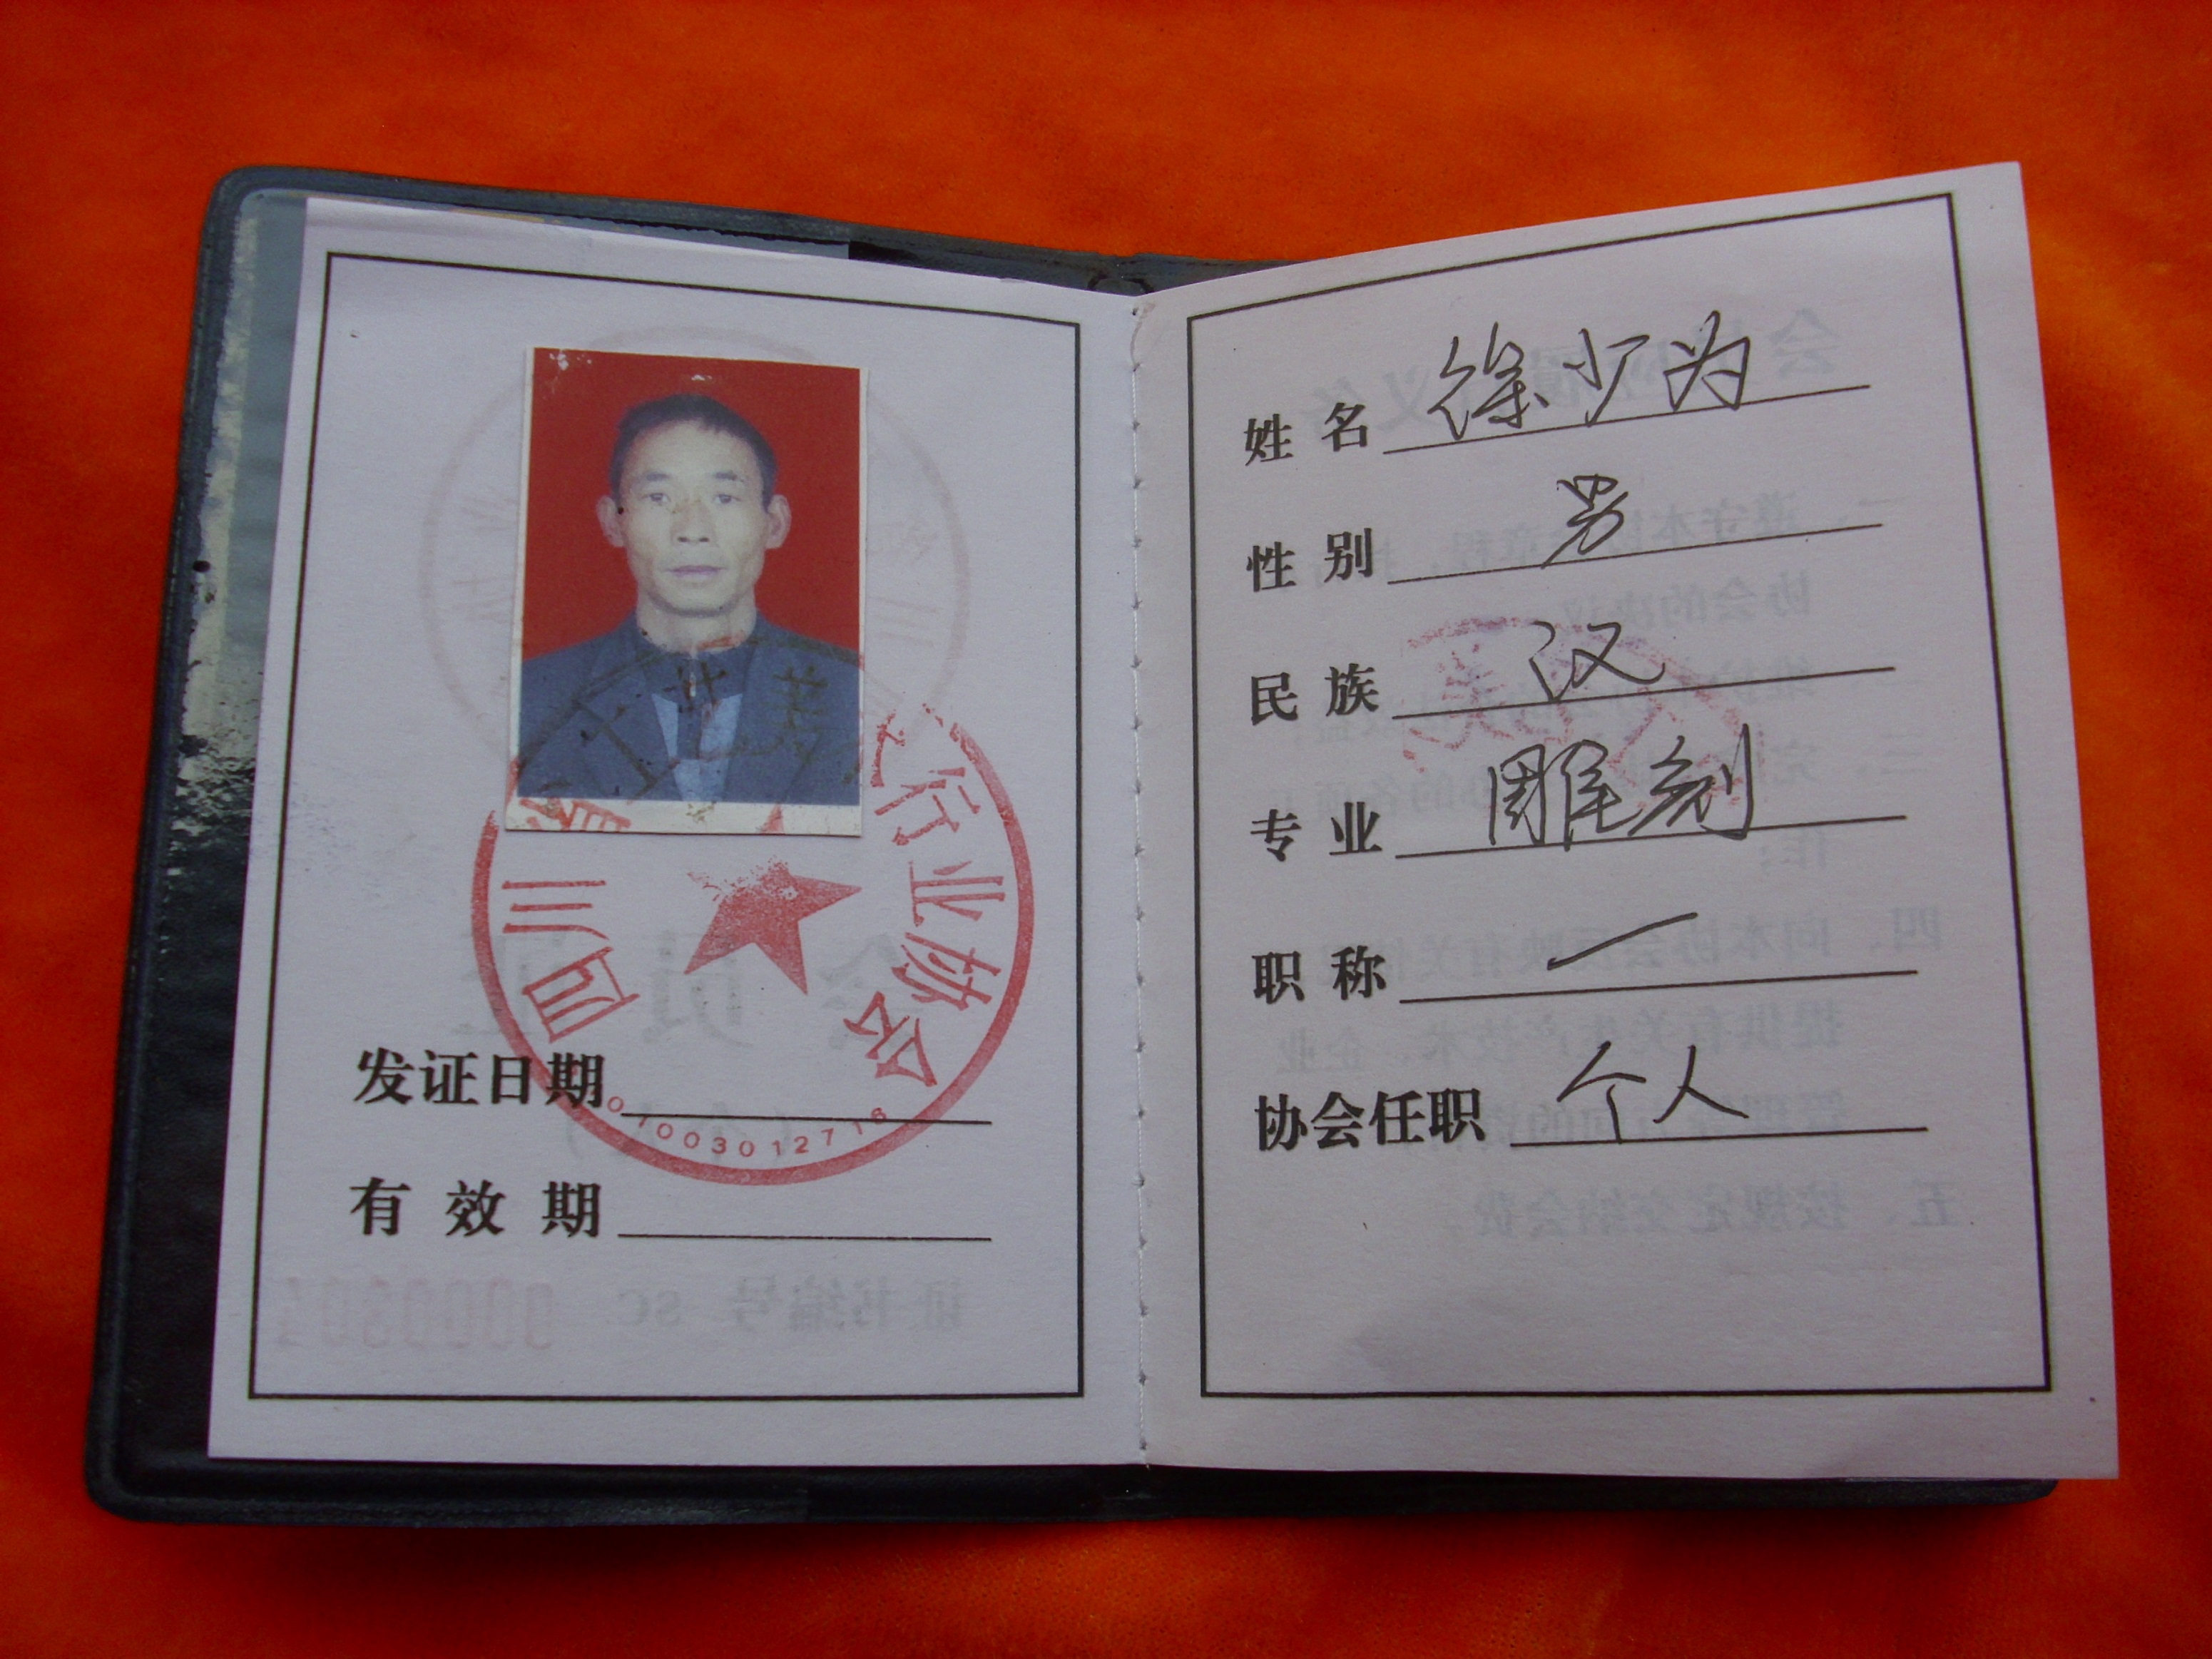 四川省工艺美术行业协会
发证日期
有效期
姓名 徐少为
性别 男
民族 汉
专业 雕刻
职称 一
协会任职 个人